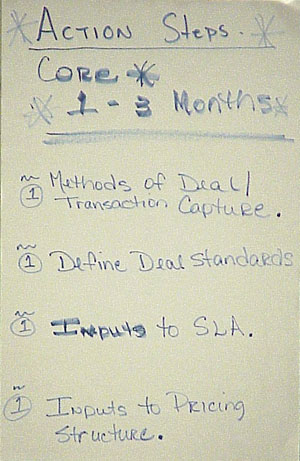 Action Steps.
Core
1 - 3 Months
① Methods of Deal/
Transaction Capture.
① Define Deal Standards
① Inputs to SLA.
① Inputs to Pricing
Structure.